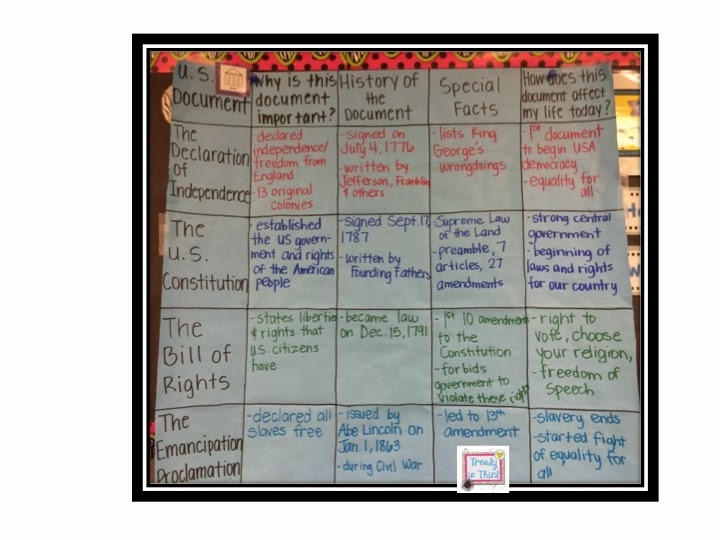 U.S.
Document
Why is this
document
important?
History of
the
Document
Special
Facts
How does this
document affect
my life today?
The
Declaration
of
Independence
-declared
independence/
freedom from
England
-13 original
colonies
-signed on
July 4, 1776
-written by
Jefferson, Franklin
& others
-lists King
George's
wrongdoings
-1st document
to begin USA
democracy
-equality for
all
The
U.S.
Constitution
-established
the US govern-
ment and rights
of the American
people
-signed Sept. 17,
1787
-written by
Founding Fathers
-Supreme Law
of the Land
-preamble, 7
articles, 27
amendments
-strong central
government
-beginning of
laws and rights
for our country
The
Bill of
Rights
-states liberties
& rights that
U.S. citizens
have
-became law
on Dec. 15, 1791
-1st 10 amendments
to the
Constitution
-forbids
government to
violate these rights
-right to
vote, choose
your religion,
-freedom of
speech
The
Emancipation
Proclamation
-declared all
slaves free
-issued by
Abe Lincoln on
Jan. 1, 1863
-during Civil War
-led to 13th
amendment
-slavery ends
-started fight
of equality for
all